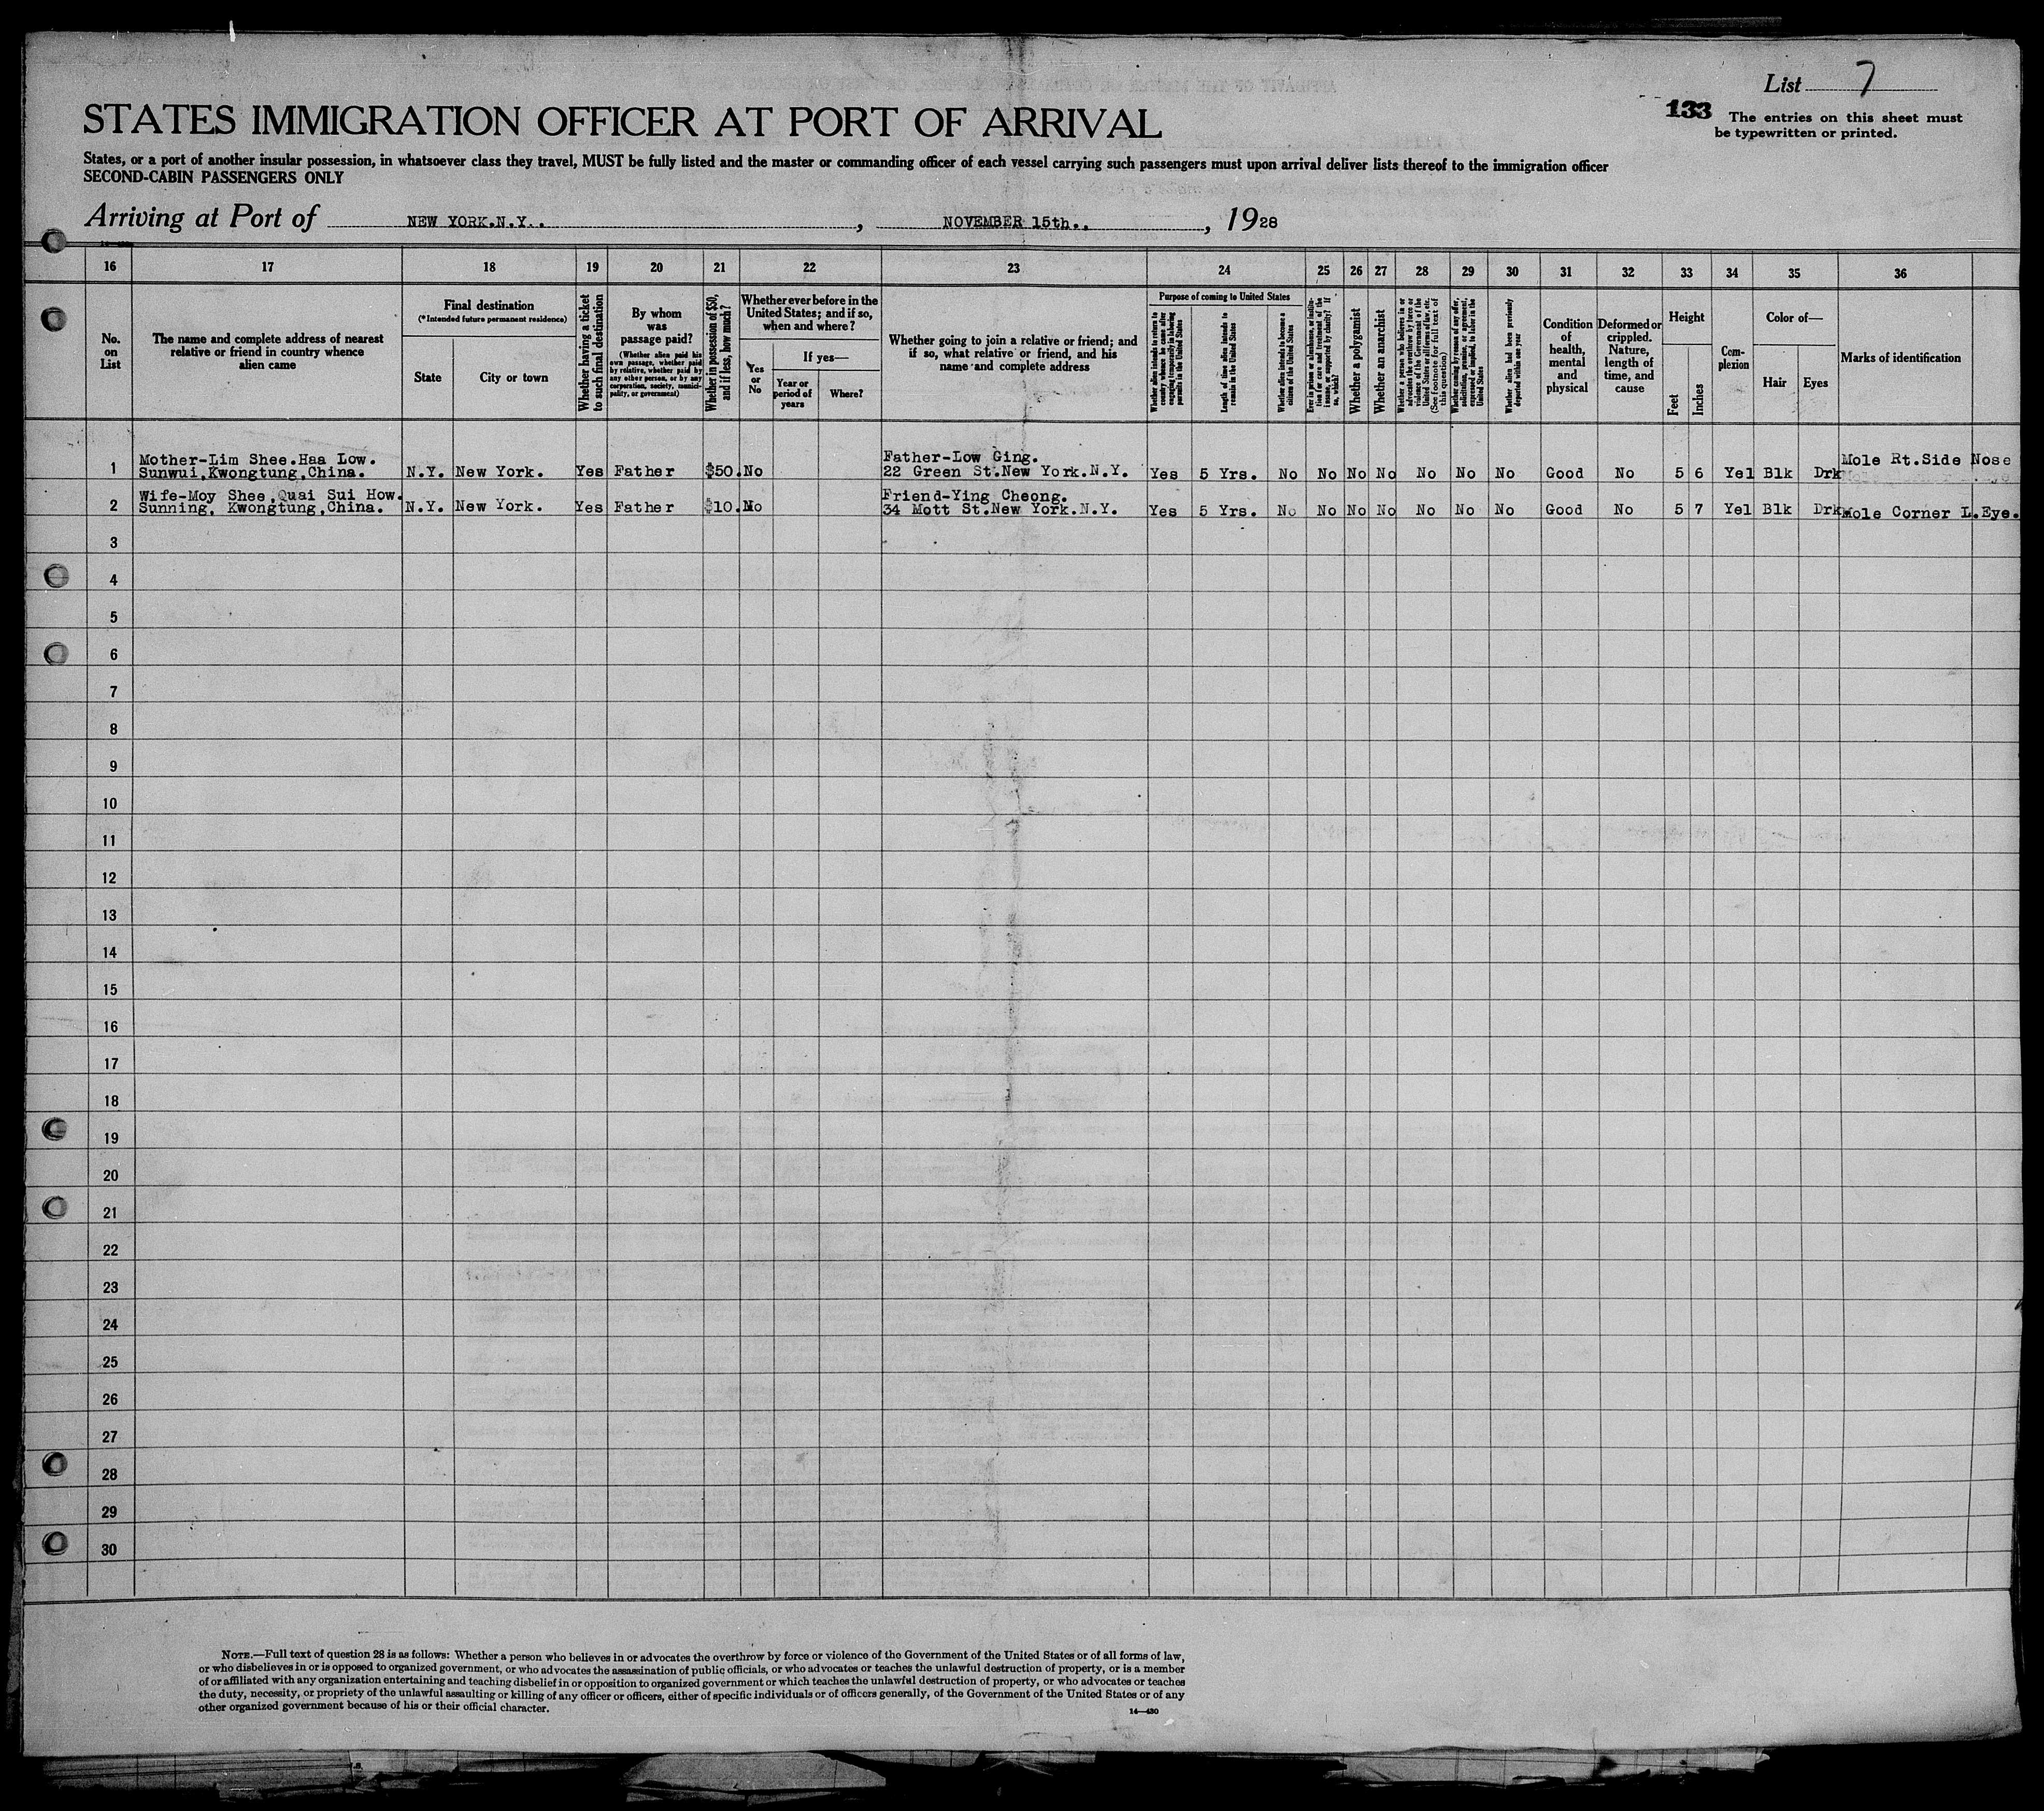 List 7
133 The entries on this sheet must
be typewritten or printed.
STATES IMMIGRATION OFFICER AT PORT OF ARRIVAL
States, or a port of another insular possession, in whatsoever class they travel, MUST be fully listed and the master or commanding officer of each vessel carrying such passengers must upon arrival deliver lists thereof to the immigration officer
SECOND-CABIN PASSENGERS ONLY
Arriving at Port of NEW YORK.N.Y.. , NOVEMBER 15th., , 1928
16 17 18 19 20 21 22 23 24 25 26 27 28 29 30 31 32 33 34 35 36
No.
on
List
The name and complete address of nearest
relative or friend in country whence
alien came
Final destination
(*Intended future permanent residence)
State
City or town
Whether having a ticket
to such final destination
By whom
was
passage paid?
(Whether alien paid his
own passage, whether paid
by relative, whether paid by
any other person, or by any
corporation, society, munici-
pality, or government)
Whether in possession of $50,
and if less, how much?
Whether ever before in the
United States; and if so,
when and where?
Yes
or
No
If yes—
Year or
period of
years
Where?
Whether going to join a relative or friend; and
if so, what relative or friend, and his
name and complete address
Purpose of coming to United States
Whether alien intends to return to
country whence he came after
engaging temporarily in laboring
pursuits in the United States
Length of time alien intends to
remain in the United States
Whether alien intends to become a
citizen of the United States
Ever in prison or almshouse, or institu-
tion for care and treatment of the
insane, or supported by charity? If
so, which?
Whether a polygamist
Whether an anarchist
Whether a person who believes in or
advocates the overthrow by force or
violence of the Government of the
United States or all forms of law, etc.
(See footnote for full text of
this question)
Whether coming by reason of any offer,
solicitation, promise, or agreement,
expressed or implied, to labor in the
United States
Whether alien had been previously
deported within one year
Condition
of
health,
mental
and
physical
Deformed or
crippled.
Nature,
length of
time, and
cause
Height
Feet
Inches
Com-
plexion
Color of—
Hair
Eyes
Marks of identification
1 Mother-Lim Shee.Haa Low.
Sunwui,Kwongtung,China. N.Y. New York. Yes Father $50. No Father-Low Ging.
22 Green St.New York.N.Y. Yes 5 Yrs. No No No No No No No Good No 5 6 Yel Blk Drk Mole Rt.Side Nose
2 Wife-Moy Shee,Quai Sui How.
Sunning, Kwongtung,China. N.Y. New York. Yes Father $10. No Friend-Ying Cheong.
34 Mott St.New York.N.Y. Yes 5 Yrs. No No No No No No No Good No 5 7 Yel Blk Drk Mole Corner L.Eye.
3
4
5
6
7
8
9
10
11
12
13
14
15
16
17
18
19
20
21
22
23
24
25
26
27
28
29
30
NOTE.—Full text of question 28 is as follows: Whether a person who believes in or advocates the overthrow by force or violence of the Government of the United States or of all forms of law,
or who disbelieves in or is opposed to organized government, or who advocates the assassination of public officials, or who advocates or teaches the unlawful destruction of property, or is a member
of or affiliated with any organization entertaining and teaching disbelief in or opposition to organized government or which teaches the unlawful destruction of property, or who advocates or teaches
the duty, necessity, or propriety of the unlawful assaulting or killing of any officer or officers, either of specific individuals or of officers generally, of the Government of the United States or of any
other organized government because of his or their official character.
14—430